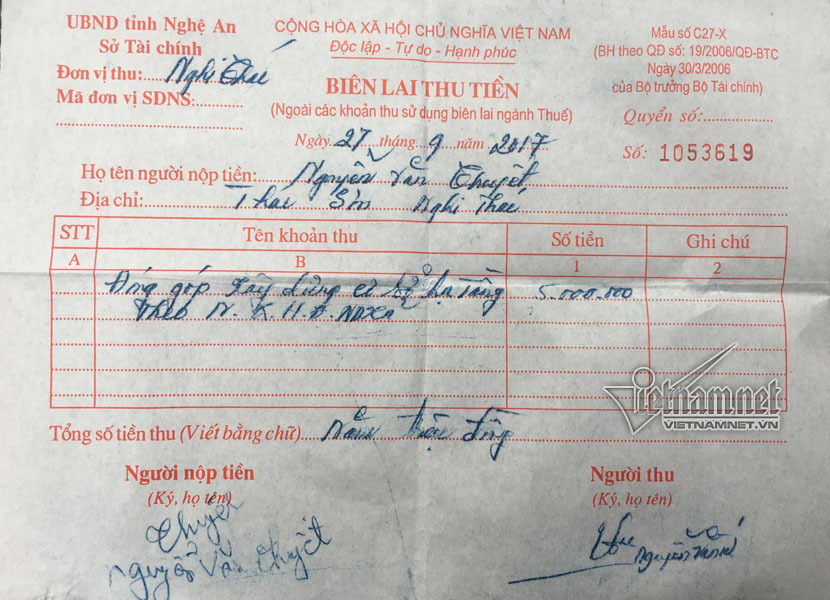 UBND tỉnh Nghệ An
Sở Tài chính
Đơn vị thu: Nghi Thái
Mã đơn vị SDNS:
CỘNG HÒA XÃ HỘI CHỦ NGHĨA VIỆT NAM
Độc lập - Tự do - Hạnh phúc
BIÊN LAI THU TIỀN
(Ngoài các khoản thu sử dụng biên lai ngành Thuế)
Ngày 27 tháng 9 năm 2017
Mẫu số C27-X
(BH theo QĐ số: 19/2006/QĐ-BTC
Ngày 30/3/2006
của Bộ trưởng Bộ Tài chính)
Quyển số:
Số: 1053619
Họ tên người nộp tiền: Nguyễn Văn Thuyết
Địa chỉ: Thái Sơn Nghi Thái
STT Tên khoản thu Số tiền Ghi chú
A B 1 2
Đóng góp xây dựng cơ sở hạ tầng 5.000.000
Theo N.
Vietnamnet
VIETNAMNET.VN
Tổng số tiền thu (Viết bằng chữ) Năm triệu đồng
Người nộp tiền
(Ký, họ tên)
Thuyết
Nguyễn Văn Thuyết
Người thu
(Ký, họ tên)
Nguyễn